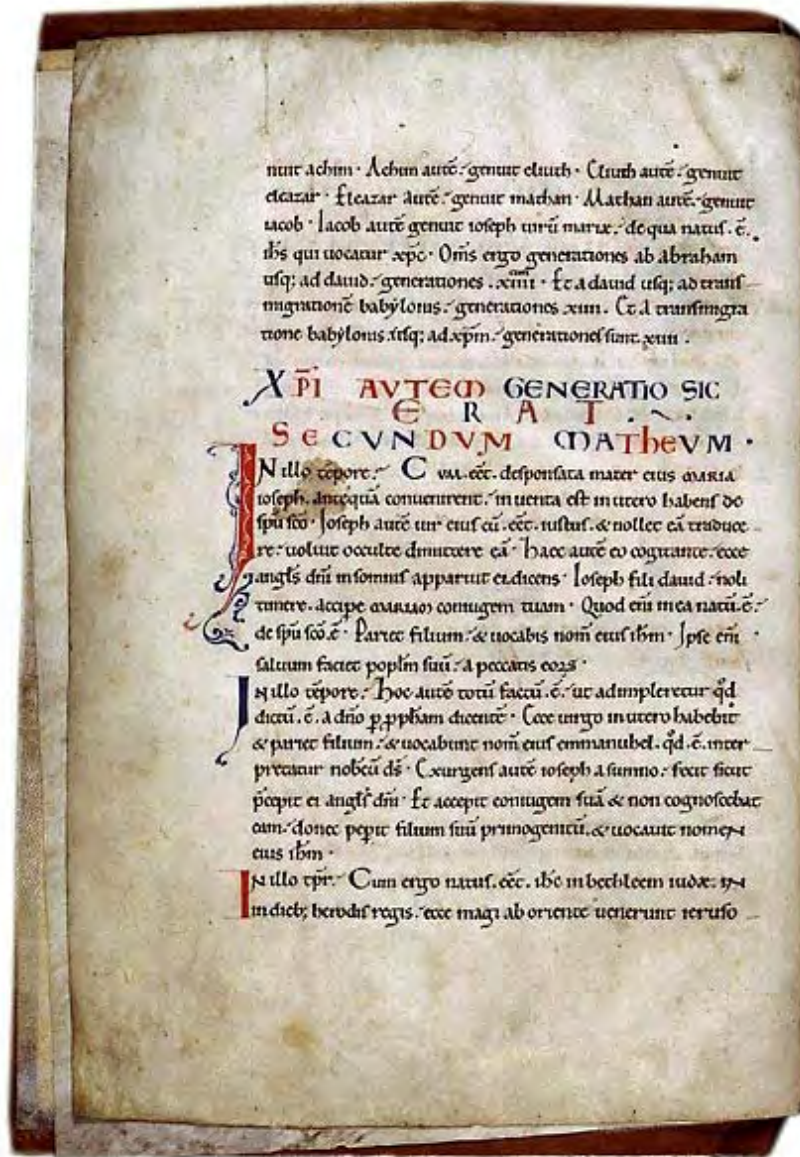 nuit achim · Achim autē · genuit eliuth · Eliuth autē · genuit
eleazar · Eleazar autē · genuit mathan · Mathan autē · genuit
iacob · Iacob autē genuit ioseph uirū mariæ · de qua natus · ē ·
ih̄s qui uocatur xp̄c · Om̄s ergo generationes ab abraham
usq; ad dauid · generationes · xiiii · Et a dauid usq; ad trans
migrationē babylonis · generationes xiiii · Et a transmigra
tione babylonis usq; ad xp̄m · generationes sunt xiiii ·
XP̄I AVTEM GENERATIO SIC
E R A T
SECVNDVM MATheVM ·
IN illo tēpore · Cum eēt desponsata mater eius MARIA
ioseph · antequā conuenirent · inuenta est in utero habens de
sp̄u sc̄o · Ioseph autē uir eius cū · eēt · iustus · & nollet eā traduce
re · uoluit occulte dimittere eā · haec autē eo cogitante · ecce
angl̄s dn̄i in somnis apparuit ei dicens · Ioseph fili dauid · noli
timere · accipe MARIAM coniugem tuam · Quod eni̅ in ea natū · ē ·
de sp̄u sc̄o · ē · Pariet filium · & uocabis nom̄ eius ih̄m · Ipse eni̅
saluum faciet popl̄m suū · a peccatis eoꝝ ·
IN illo tēpore · hoc autē totū factū · ē · ut adimpleretur qd̄
dictū · ē · a dn̄o ꝑ ꝓph̄am dicentē · Ecce uirgo in utero habebit
& pariet filium · & uocabunt nom̄ eius emmanuhel · qd̄ · ē · inter
pretatur nobcū ds̄ · Exurgens autē ioseph a sumno · fecit sicut
p̄cepit ei angl̄s dn̄i · Et accepit coniugem suā & non cognoscebat
eam · donec peꝑit filium suū primogenitū · & uocauit nomen
eius ih̄m ·
IN illo tp̄r · Cum ergo natus · eēt · ih̄c in bethleem iudæ · in
in dieb; herodis regis · ecce magi ab oriente uenerunt ieruso